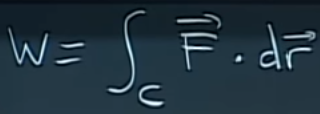 W = ∫_C F⃗ · dr⃗